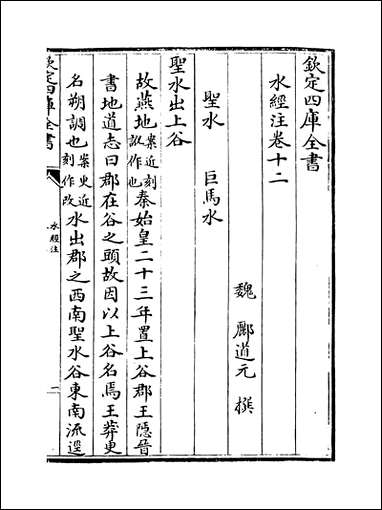 欽定四庫全書
水經注卷十二
魏 酈道元 撰
聖水 巨馬水
聖水出上谷
故燕地案近刻訛作也秦始皇二十三年置上谷郡王隱晉
書地道志曰郡在谷之頭故因以上谷名焉王莽更
名朔調也案更近刻作改水出郡之西南聖水谷東南流逕
欽定四庫全書
水經注